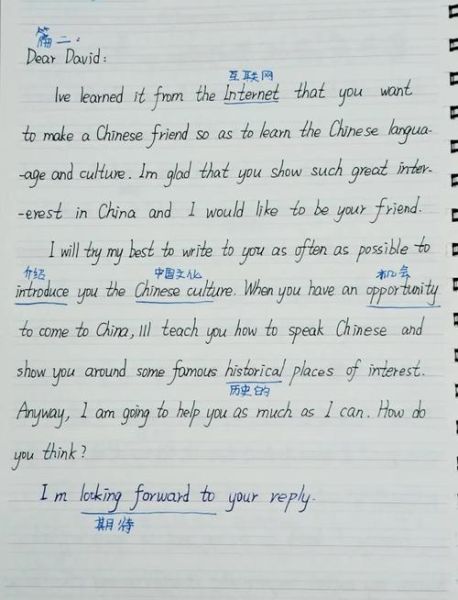 篇二：
Dear David:
互联网
Ive learned it from the Internet that you want
to make a Chinese friend so as to learn the Chinese langua-
-age and culture. Im glad that you show such great inter-
-erest in China and I would like to be your friend.
I will try my best to write to you as often as possible to
介绍 中国文化 机会
introduce you the Chinese culture. When you have an opportunity
to come to China, Ill teach you how to speak Chinese and
show you around some famous historical places of interest.
历史的
Anyway, I am going to help you as much as I can. How do
you think?
Im looking forward to your reply.
期待